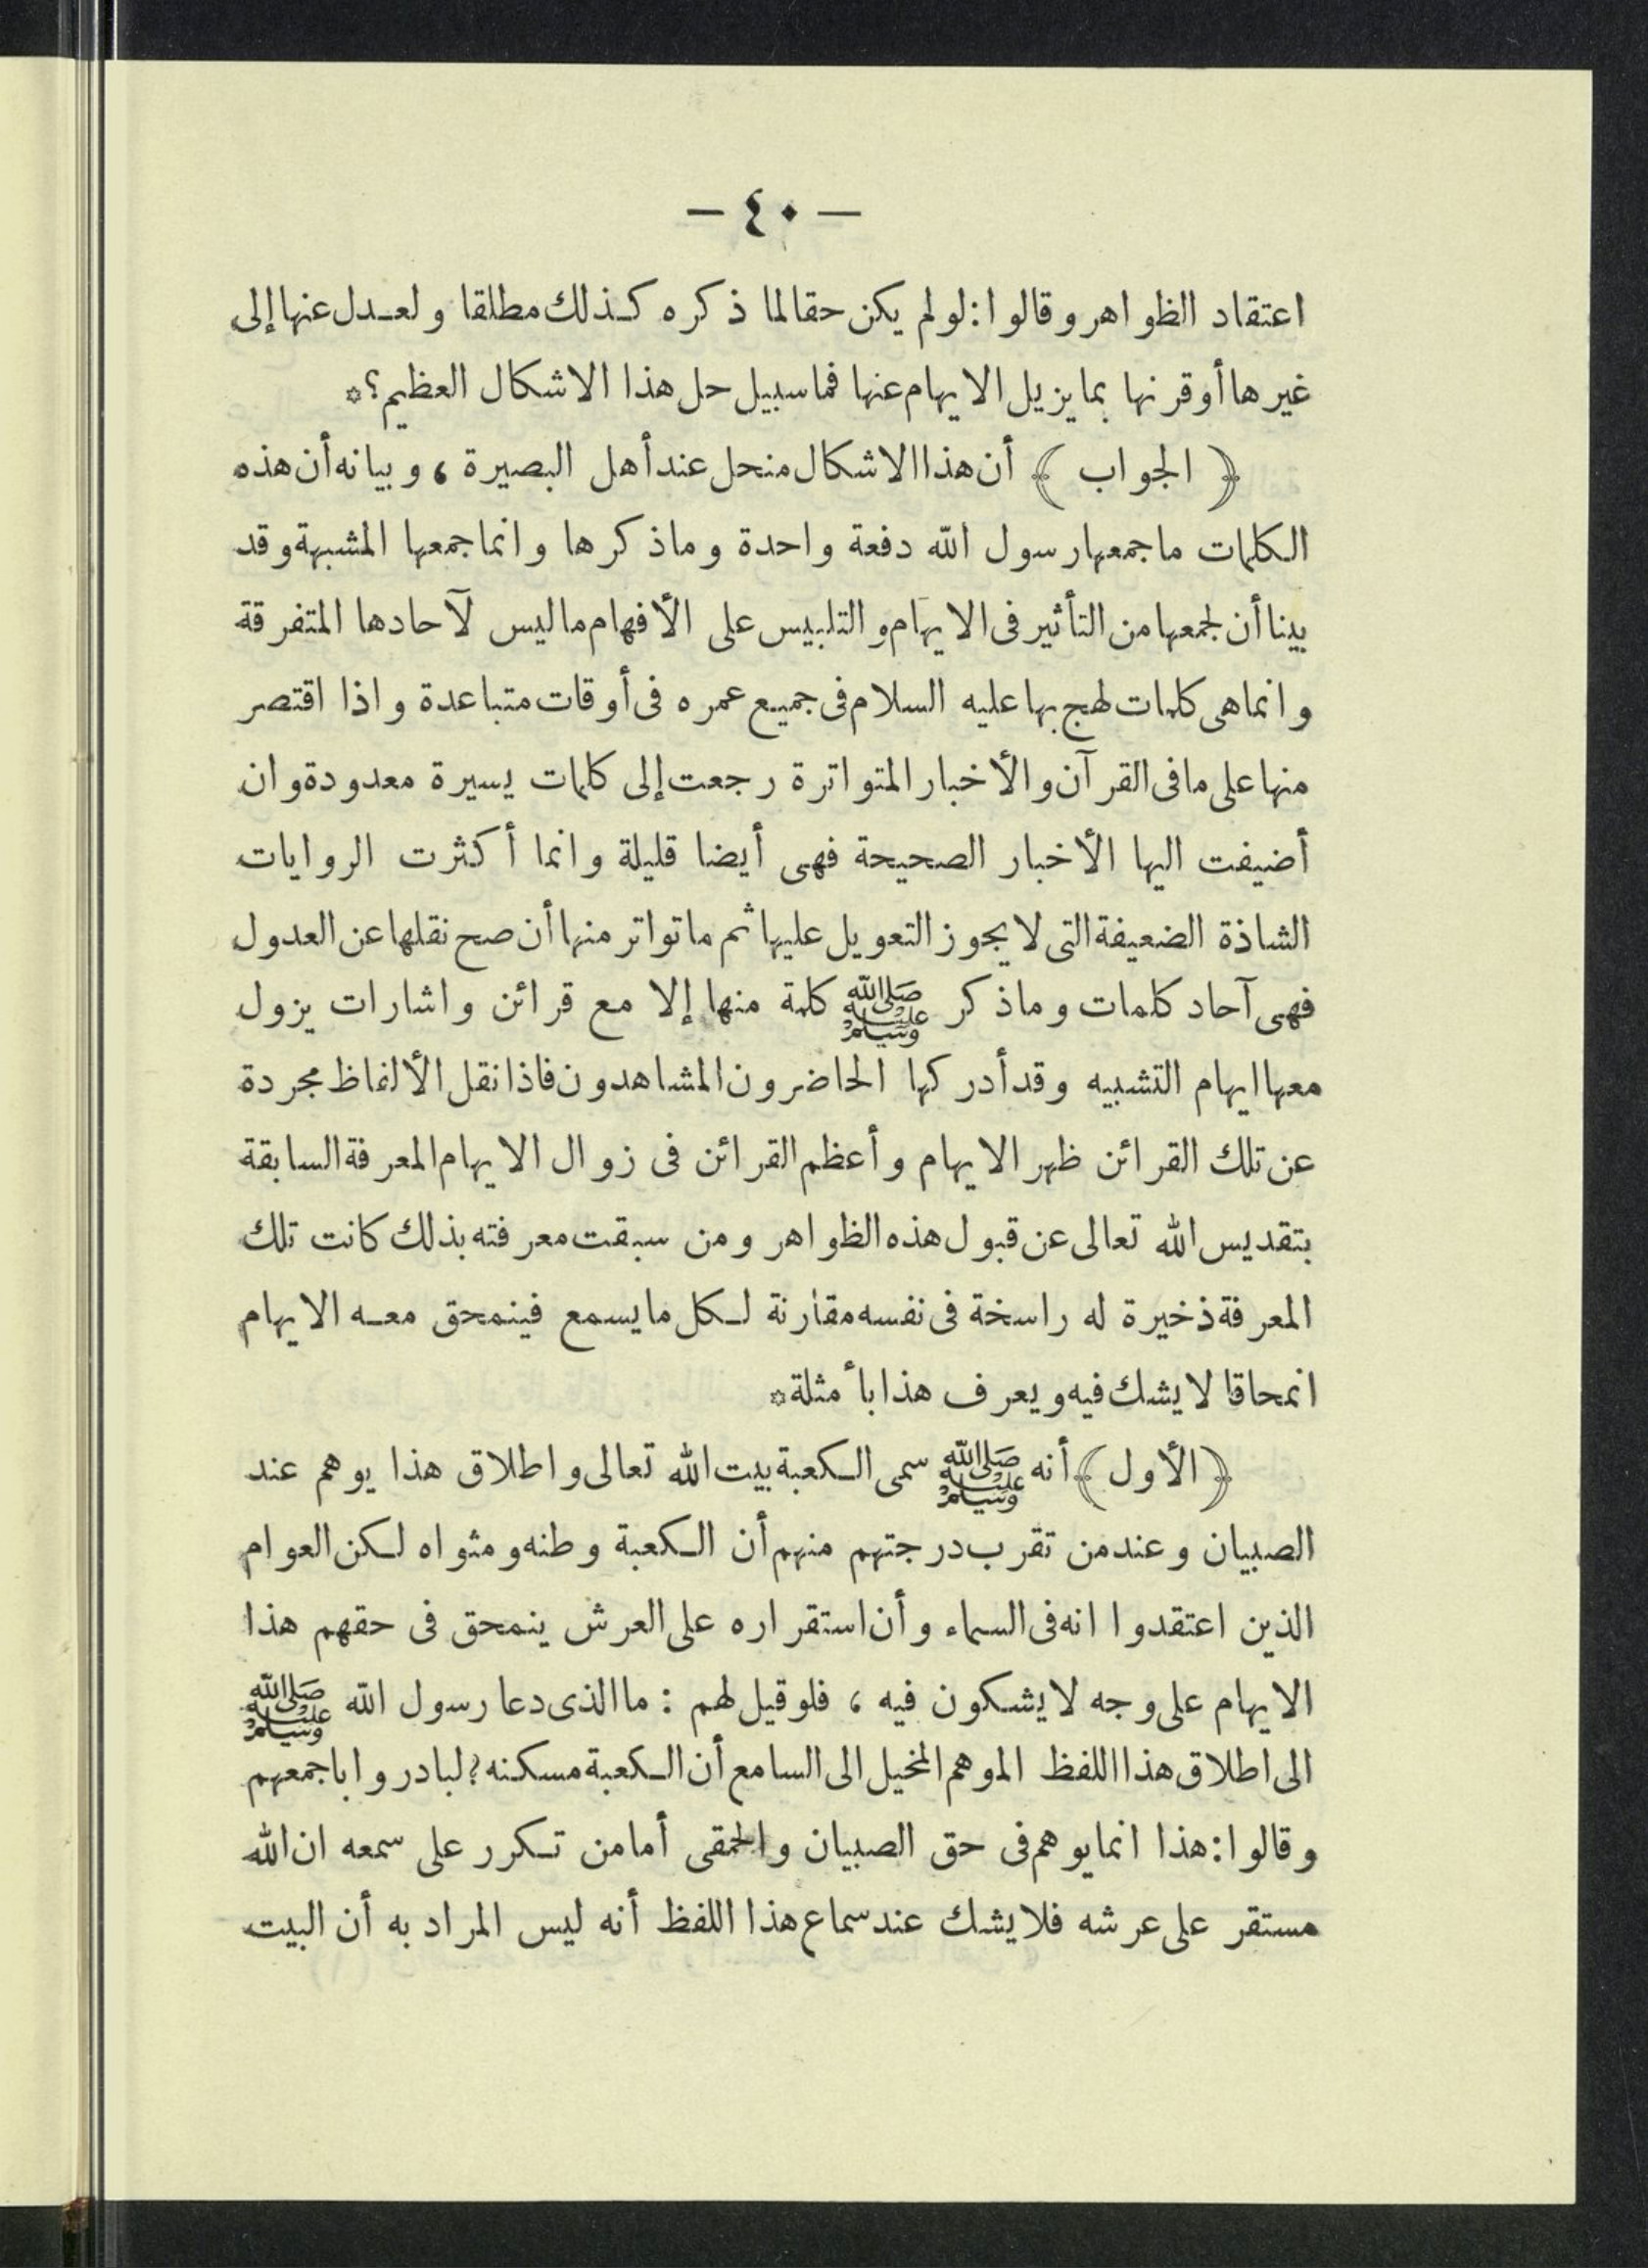 — ٤٠ —
اعتقاد الظواهر وقالوا: لو لم يكن حقا لما ذكره كذلك مطلقا ولعدل عنها إلى
غيرها أو قرنها بما يزيل الايهام عنها فما سبيل حل هذا الاشكال العظيم؟*
﴿ الجواب ﴾ أن هذا الاشكال منحل عند أهل البصيرة، وبيانه أن هذه
الكلمات ما جمعها رسول الله دفعة واحدة وما ذكرها وانما جمعها المشبهة وقد
بينا أن لجمعها من التأثير فى الايهام والتلبيس على الأفهام ما ليس لآحادها المتفرقة
وانما هى كلمات لهج بها عليه السلام فى جميع عمره فى أوقات متباعدة واذا اقتصر
منها على ما فى القرآن والأخبار المتواترة رجعت إلى كلمات يسيرة معدودة وان
أضيفت اليها الأخبار الصحيحة فهى أيضا قليلة وانما أكثرت الروايات
الشاذة الضعيفة التى لا يجوز التعويل عليها ثم ما تواتر منها أن صح نقلها عن العدول
فهى آحاد كلمات وما ذكر ﷺ كلمة منها إلا مع قرائن واشارات يزول
معها ايهام التشبيه وقد أدركها الحاضرون المشاهدون فاذا نقل الألفاظ مجردة
عن تلك القرائن ظهر الايهام وأعظم القرائن فى زوال الايهام المعرفة السابقة
بتقديس الله تعالى عن قبول هذه الظواهر ومن سبقت معرفته بذلك كانت تلك
المعرفة ذخيرة له راسخة فى نفسه مقارنة لكل ما يسمع فينمحق معه الايهام
انمحاقا لا يشك فيه ويعرف هذا بأمثلة*
﴿الأول﴾ أنه ﷺ سمى الكعبة بيت الله تعالى واطلاق هذا يوهم عند
الصبيان وعند من تقرب درجتهم منهم أن الكعبة وطنه ومثواه لكن العوام
الذين اعتقدوا انه فى السماء وأن استقراره على العرش ينمحق فى حقهم هذا
الايهام على وجه لا يشكون فيه، فلو قيل لهم: ما الذى دعا رسول الله ﷺ
الى اطلاق هذا اللفظ الموهم المخيل الى السامع أن الكعبة مسكنه؟ لبادروا باجمعهم
وقالوا: هذا انما يوهم فى حق الصبيان والحمقى أما من تكرر على سمعه ان الله
مستقر على عرشه فلا يشك عند سماع هذا اللفظ أنه ليس المراد به أن البيت